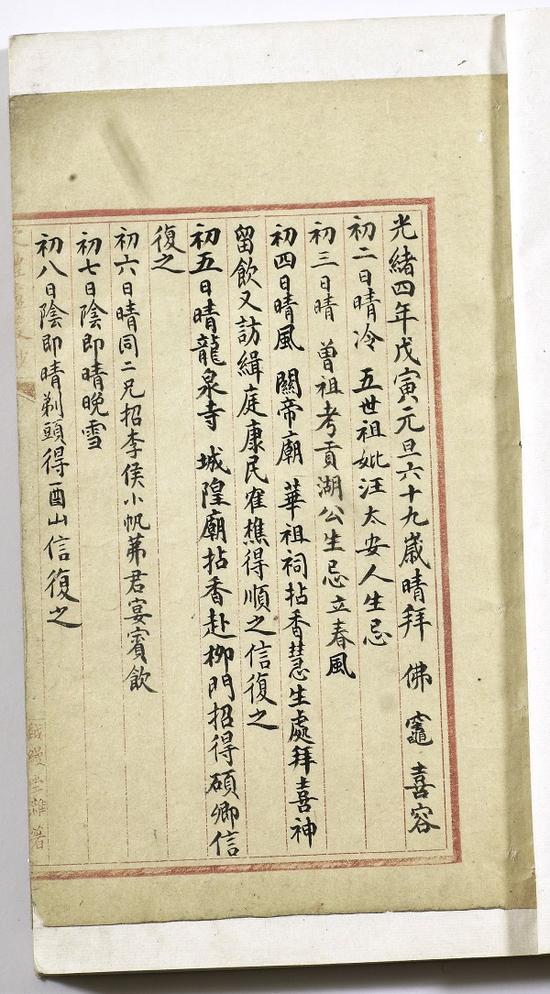 光緒四年戊寅元旦六十九歲晴拜 佛 竈 喜容
初二日晴冷 五世祖妣汪太安人生忌
初三日晴 曾祖考貢湖公生忌立春風
初四日晴風 關帝廟 華祖祠拈香慧生處拜喜神
留飲又訪緝庭康民寉樵得順之信復之
初五日晴龍泉寺 城隍廟拈香赴柳門招得碩卿信
復之
初六日晴同二兄招李侯小帆茀君宴賓飲
初七日陰即晴晚雪
初八日陰即晴剃頭得酉山信復之